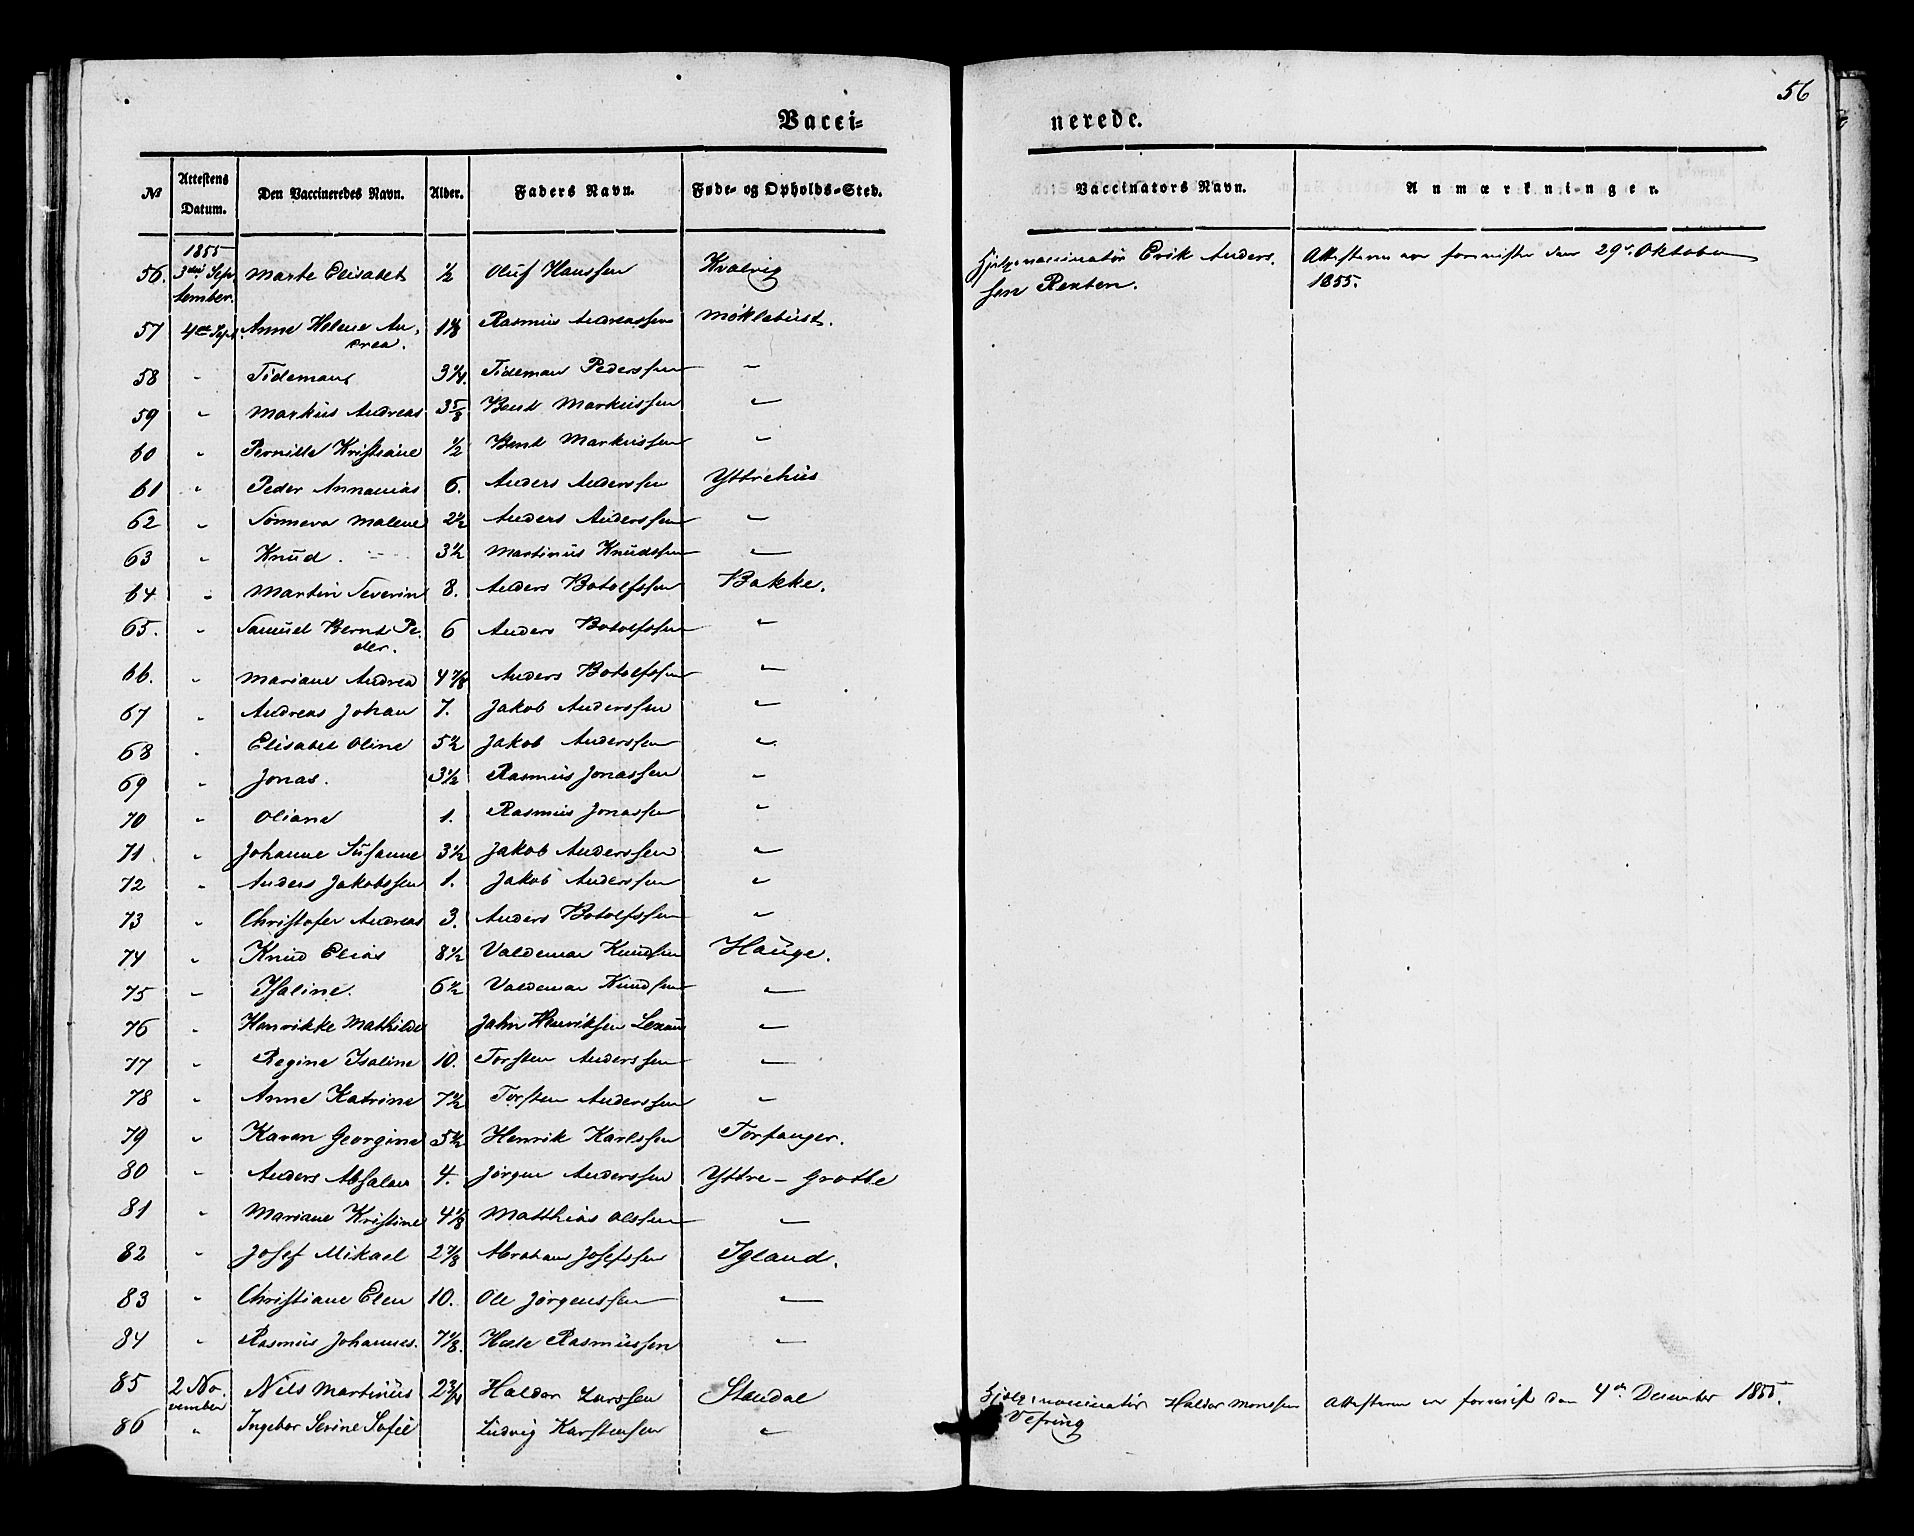 56
Vacci=
nerede.
№ Attestens Datum. Den Vaccineredes Navn. Alder. Faders Navn. Føde- og Opholds-Sted. Vaccinators Navn. Anmærkninger.
1855
56. 3die Sep- Marte Elisabet ½ Oluf Hanssen Kvalvig Hjelpevaccinatør Erik Anders- Attesterne ere forevister den 29de Oktober
tember. sen Rexten. 1855.
57 4de Sept. Anne Helene An- 1⅛ Rasmus Andreassen Møkletust.
drea.
58 " Tideman 3¼. Tideman Pederssen "
59 " Markus Andreas 3⅝ Bend Markussen "
60 " Pernille Kristiane ½ Bend Markussen "
61 " Peder Annanias 6. Anders Anderssen Yttrehus
62 " Sønneva Malene 2½ Anders Anderssen "
63 " Knud. 3½ Martinus Knudssen "
64 " Martin Severin 8. Anders Botolfssen Bakke.
65. " Samuel Bernt Pe- 6 Anders Botolfssen "
der.
66. " Mariane Andrea 4⅞ Anders Botolfssen "
67 " Andreas Johan 7. Jakob Anderssen "
68 " Elisabet Oline 5½ Jakob Anderssen "
69 " Jonas. 3½ Rasmus Jonassen "
70 " Oliane 1. Rasmus Jonassen "
71 " Johanne Susanne 3½ Jakob Anderssen "
72 " Anders Jakobssen 1. Jakob Anderssen "
73 " Christofer Andreas 3. Anders Botolfssen "
74 " Knud Elias 8½ Valdemar Knudsen Hauge.
75 " Isaline. 6½ Valdemar Knudsen "
76 " Henrikke Mathilde Jahn Henriksen "
77 " Regine Isaline 10. Torsten Anderssen "
78 " Anne Katrine 7½ Torsten Anderssen "
79 " Karen Georgine 5½ Henrik Karlssen Torfanger.
80 " Anders Absalon 4. Jørgen Anderssen Yttre-Grotle
81 " Mariane Kristine 4⅛ Matthias Olssen "
82 " Josef Mikael 2⅞ Abraham Josefssen Igland.
83 " Christiane Elen 10. Ole Jørgenssen "
84 " Rasmus Johannes. 7⅛. Rasmussen "
85 2 No- Nils Martinus 2¾ Haldor Larssen Standal Hjelpevaccinatør Haldor Monssen Attesterne er forevist den 4de December 1855.
vember Vefring
86 " Ingebor Serine Sofie Ludvig Karstensen "